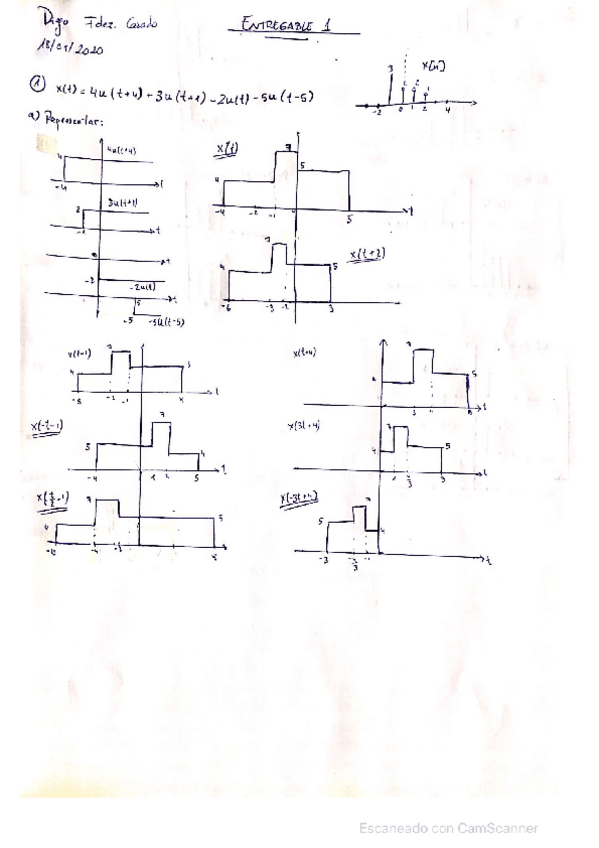 Diego Fdez. Casado
ENTREGABLE 1
18/01/2020
① x(t) = 4u(t+4) + 3u(t+1) - 2u(t) - 5u(t-5)
x[n]
3
-2 0 1 2 4
a) Representar:
4u(t+4)
4
-4
t
3u(t+1)
3
-1
t
t
-2
-2u(t)
t
5
-5
-5u(t-5)
x(t)
7
5
4
-4 -2 -1 5
t
x(t+2)
7
4
5
-6 -3 -2 3
x(t-1)
7
4
5
-5 -2 -1 4
t
x(t+4)
7
5
3
t
x(-t-1)
7
5
4
-4 1 2 5
t
x(3t+4)
7
4
5
1
3
t
x(t/2-1)
7
4
5
x(-3t+4)
7
5
4
-3 -1
t
Escaneado con CamScanner